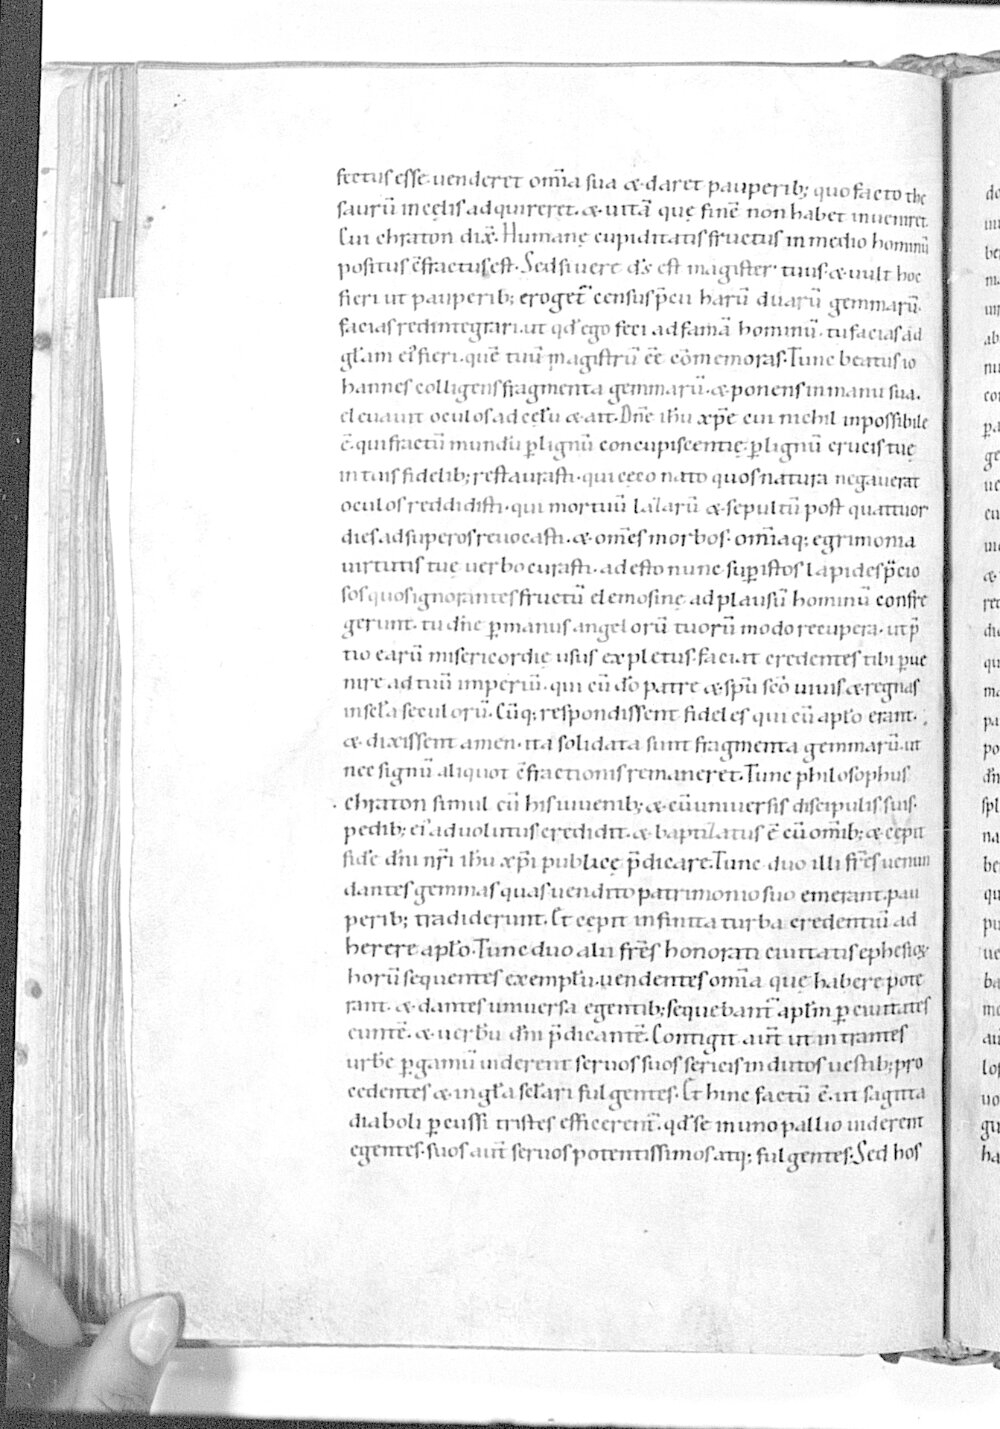 fectus esse uenderet om̄ia sua & daret pauperib; quo facto the
saurū in cęlis adquireret. & uitā que finē non habet inueniret.
Cui chraton dix̄. Humanę cupiditatis fructus in medio hominū
positus c̄fractus est. Sed si uere d̄s est magister tuus & uult hoc
fieri ut pauperib; eroget̄ census p̄cii harū duarū gemmarū.
facias redintegrari. ut qd̄ ego feci ad famā hominū. tu facias ad
gl̄am ei' fieri. quē tuū magistrū eē cōmemoras. Tunc beatus io
hannes colligens fragmenta gemmarū. & ponens in manu sua.
eleuauit oculos ad cęlū & ait. Dn̄e ihū xp̄e cui nichil inpossibile
ē. qui fractū mundū p̱ lignū concupiscentię. p̱ lignū crucis tuę
in tuis fidelib; restaurasti. qui ceco nato quos natura negauerat
oculos reddidisti. qui mortuū lazarū & sepultū post quattuor
dies ad superos reuocasti. & om̄es morbos. om̄iaq; egrimonia
uirtutis tuę uerbo curasti. adesto nunc sup̱ istos lapides p̄cio
sos quos ignorantes fructū elemosinę ad plausū hominū confre
gerunt. tu dn̄e p̱ manus angelorū tuorū modo recupera. ut p̄
tio earū misericordię usus expletus. faciat credentes tibi p̱ue
nire ad tuū imperiū. qui cū dō patre & sp̄u scō uiuis & regnas
in sc̄la seculorū. Cūq; respondissent fideles qui cū apl̄o erant.
& dixissent amen. ita solidata sunt fragmenta gemmarū. ut
nec signū aliquot c̄fractionis remaneret. Tunc philosophus
chraton simul cū his iuuenib; & cū uniuersis discipulis suis.
pedib; ei' aduolutus credidit. & baptizatus ē cū om̄ib; & cępit
fidē dn̄i nr̄i ihū xp̄i publicę p̄dicare. Tunc duo illi fr̄es uenun
dantes gemmas quas uendito patrimonio suo emerant. pau
perib; tradiderunt. Et cępit infinita turba credentiū ad
herere apl̄o. Tunc duo alii fr̄es honorati ciuitatis ephesioꝝ
horū sequentes exemplū. uendentes om̄ia que habere pote
rant. & dantes uniuersa egentib; sequebant̄ apl̄m p̱ ciuitates
euntē. & uerbū dn̄i p̄dicantē. Contigit aut̄ ut intrantes
urbē p̱gamū uiderent seruos suos sericis indutos uestib; pro
cedentes & in gl̄a sc̄lari fulgentes. Et hinc factū ē. ut sagitta
diaboli p̱cussi tristes efficerent̄. qd̄ se in uno pallio uiderent
egentes. suos aut̄ seruos potentissimos. atq; fulgentes. Sed hos